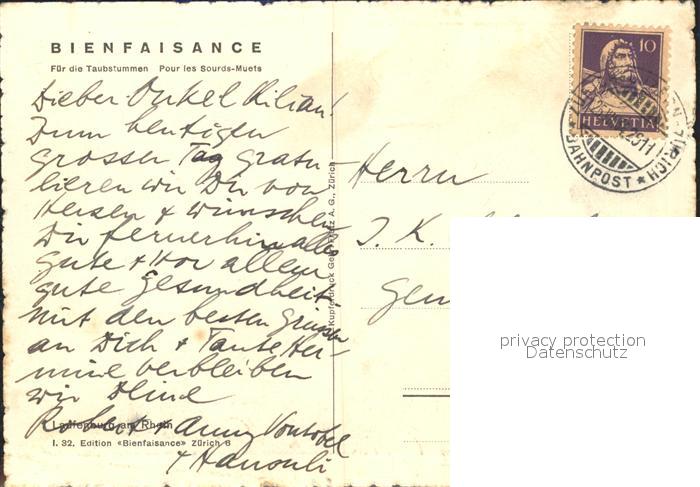 BIENFAISANCE
Für die Taubstummen Pour les Sourds-Muets
Lieber Onkel Kilian!
Zum heutigen
grossen Tag gratu-
lieren wir Dir von
Herzen + wünschen
Dir fernerhin alles
gute + vor allem
gute Gesundheit
mit den besten Grüssen
an Dich + Tante Her-
mine verbleiben
wir Deine
Robert + Anny Vontobel
+ Hansuli
Laufenburg am Rhein
I. 32. Edition «Bienfaisance» Zürich 6
Kupferdruck Gebr. Fretz A. G., Zürich
10
HELVETIA
BAHNPOST * ZÜRICH
Herrn
J. K.
privacy protection
Datenschutz